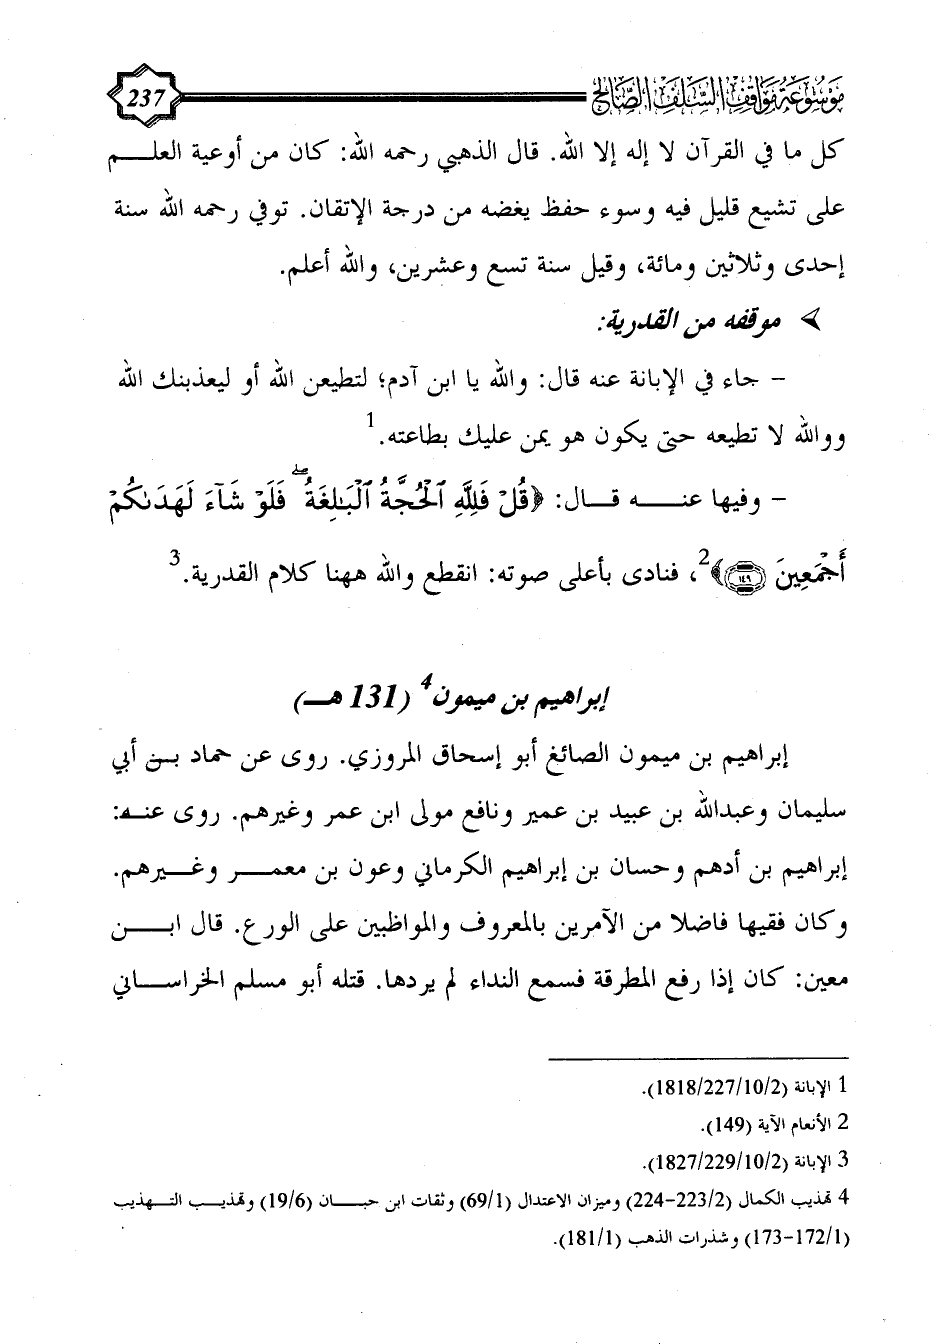 موسوعة مواقف السلف الصالح
237
كل ما في القرآن لا إله إلا الله. قال الذهبي رحمه الله: كان من أوعية العلـــم
على تشيع قليل فيه وسوء حفظ يغضه من درجة الإتقان. توفي رحمه الله سنة
إحدى وثلاثين ومائة، وقيل سنة تسع وعشرين، والله أعلم.
موقفه من القدرية:
– جاء في الإبانة عنه قال: والله يا ابن آدم؛ لتطيعن الله أو ليعذبنك الله
ووالله لا تطيعه حتى يكون هو يمن عليك بطاعته.1
– وفيها عنـــــه قـــال: ﴿قُلْ فَلِلَّهِ ٱلْحُجَّةُ ٱلْبَٰلِغَةُ ۖ فَلَوْ شَآءَ لَهَدَىٰكُمْ
أَجْمَعِينَ ١٤٩﴾2، فنادى بأعلى صوته: انقطع والله ههنا كلام القدرية.3
إبراهيم بن ميمون4 (131 هـــ)
إبراهيم بن ميمون الصائغ أبو إسحاق المروزي. روى عن حماد بــن أبي
سليمان وعبدالله بن عبيد بن عمير ونافع مولى ابن عمر وغيرهم. روى عنــه:
إبراهيم بن أدهم وحسان بن إبراهيم الكرماني وعون بن معمـــر وغـــيرهم.
وكان فقيها فاضلا من الآمرين بالمعروف والمواظبين على الورع. قال ابـــــن
معين: كان إذا رفع المطرقة فسمع النداء لم يردها. قتله أبو مسلم الخراســـاني
1 الإبانة (1818/227/10/2).
2 الأنعام الآية (149).
3 الإبانة (1827/229/10/2).
4 تهذيب الكمال (223/2-224) وميزان الاعتدال (69/1) وثقات ابن حبـــان (19/6) وتهذيـــب التـــهذيب
(172/1-173) وشذرات الذهب (181/1).